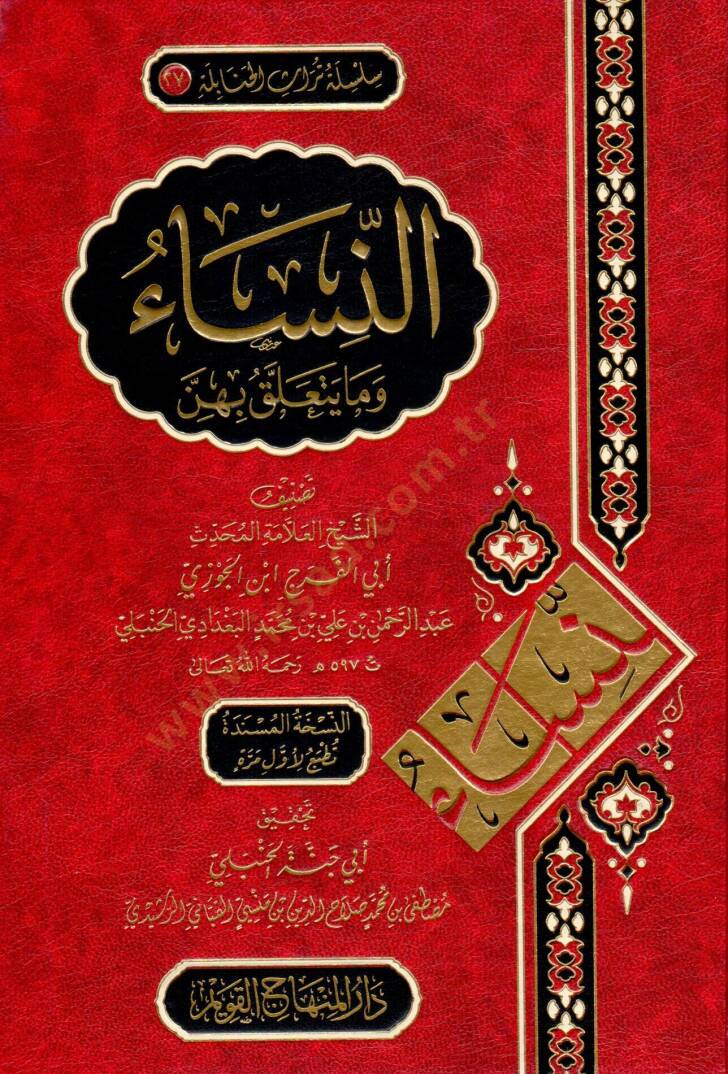 سِلْسِلَةُ تُرَاثِ الحَنَابِلَةِ ٢٧
النِّسَاءُ
وَمَا يَتَعَلَّقُ بِهِنَّ
تَصْنِيفُ
الشَّيْخِ العَلَّامَةِ المُحَدِّثِ
أَبِي الفَرَجِ ابْنِ الجَوْزِيِّ
عَبْدِ الرَّحْمٰنِ بْنِ عَلِيِّ بْنِ مُحَمَّدٍ البَغْدَادِيِّ الحَنْبَلِيِّ
ت ٥٩٧ هـ رَحِمَهُ اللهُ تَعَالَى
النِّسَاءُ
النُّسْخَةُ المُسْنَدَةُ
تُطْبَعُ لِأَوَّلِ مَرَّةٍ
تَحْقِيقُ
أَبِي جَنَّةَ الحَنْبَلِيِّ
مُصْطَفَى بْنِ مُحَمَّدٍ صَلَاحِ الدِّينِ بْنِ مَنْسِيٍّ القَبَّانِيِّ الرَّشِيدِيِّ
دَارُ المِنْهَاجِ القَوِيمِ